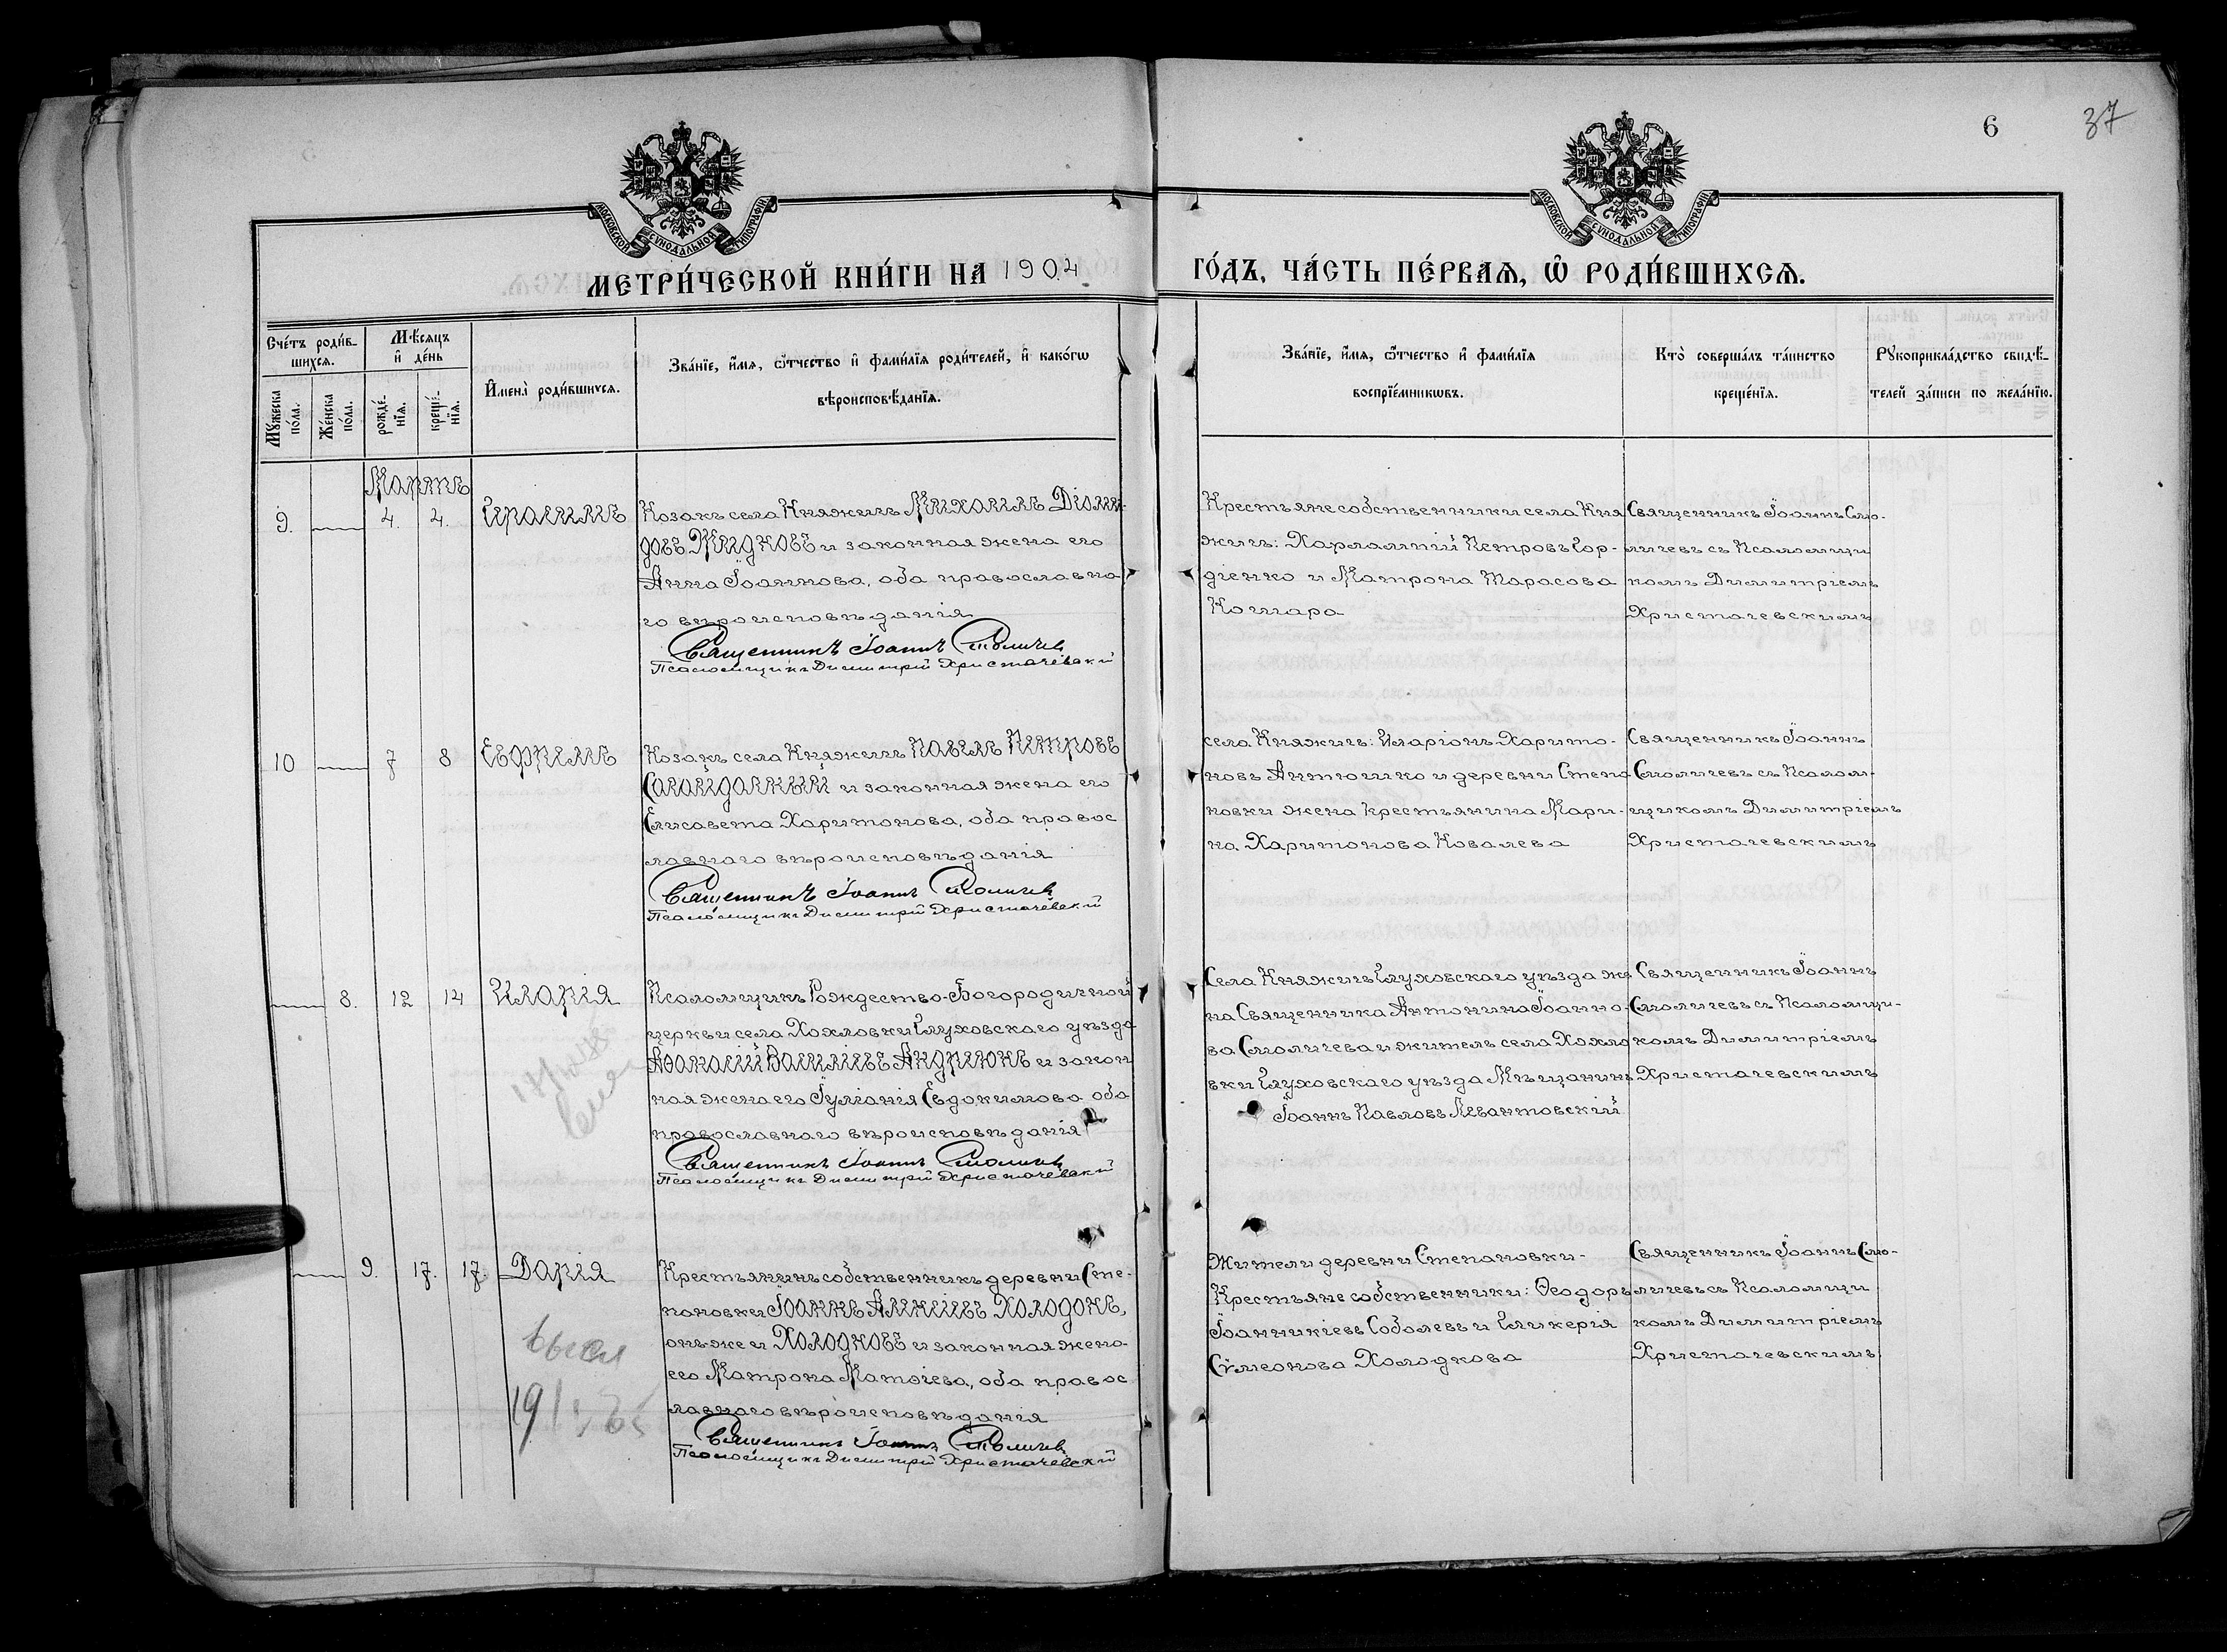 6
37
МОСКОВСКОЙ СѴНОДАЛЬНОЙ ТИПОГРАФІИ
МОСКОВСКОЙ СѴНОДАЛЬНОЙ ТИПОГРАФІИ
МЕТРИ́ЧЕСКОЙ КНИ́ГИ НА 1904
ГО́ДЪ, ЧА́СТЬ ПЕ́РВАѦ, Ѡ҆ РОДИ́ВШИХСѦ.
Сче́тъ роди́в-
шихсѧ.
Мꙋ́жеска
по́ла.
Же́нска
по́ла.
Мѣ́сѧцъ
и҆ де́нь
рожде́-
нїѧ.
креще́-
нїѧ.
И҆мена̀ роди́вшихсѧ.
Зва́нїе, и҆́мѧ, ѻ҆́тчество и҆ фами́лїѧ роди́телей, и҆ како́гѡ
вѣроисповѣ́данїѧ.
Зва́нїе, и҆́мѧ, ѻ҆́тчество и҆ фами́лїѧ
воспрїе́мникѡвъ.
Кто̀ соверша́лъ та́инство
креще́нїѧ.
Рꙋкоприкла́дство свидѣ́-
телей за́писи по жела́нїю.
Мартъ
9. 4. 4. Герасимъ
Козакъ села Княжичъ Михаилъ Діоми-
довъ Жидковъ и законная жена его
Анна Іоаннова, оба православна
го вѣроисповѣданія
Священникъ Іоаннъ Смоличевъ
Псаломщикъ Димитрій Христачевскій
Крестьяне собственники села Кня
жичъ: Харлампій Петровъ Гор-
діенко и Матрона Тарасова
Кошара
Священникъ Іоаннъ Смо-
личевъ съ Псаломщи
комъ Димитріемъ
Христачевскимъ
10 7 8 Ефремъ
Козакъ села Княжичъ Павелъ Петровъ
Сагайдачный и законная жена его
Елисавета Харитонова, оба правос
лавнаго вѣроисповѣданія
Священникъ Іоаннъ Смоличевъ
Псаломщикъ Димитрій Христачевскій
села Княжичъ: Иларіонъ Харито-
новъ Антюшко и деревни Степа
новки жена крестьянина Мари-
на Харитонова Ковалева
Священникъ Іоаннъ
Смоличевъ съ Псалом-
щикомъ Димитріемъ
Христачевскимъ
8. 12 14 Иларія
Псаломщикъ Рождество-Богородичной
церкви села Хохловки Глуховскаго уѣзда
Аѳанасій Василіевъ Андріюкъ и закон
ная жена его Іуліанія Евдокимова оба
православнаго вѣроисповѣданія
Священникъ Іоаннъ Смоличевъ
Псаломщикъ Димитрій Христачевскій
Села Княжичъ Глуховскаго уѣзда же
на Священника Антонина Іоанно-
ва Смоличева и житель села Хохло
вки Глуховскаго уѣзда Мѣщанинъ
Іоаннъ Павловъ Левантовскій
Священникъ Іоаннъ
Смоличевъ съ Псаломщи-
комъ Димитріемъ
Христачевскимъ
9. 17. 17. Дарія
Крестьянинъ собственникъ деревни Сте-
пановки Іоаннъ Алексіевъ Холодокъ,
онъ же и Холодковъ и законная жена
его Матрона Матѳіева, оба правос
лавнаго вѣроисповѣданія
Священникъ Іоаннъ Смоличевъ
Псаломщикъ Димитрій Христачевскій
Жители деревни Степановки-
Крестьяне собственники: Ѳеодоръ
Іоанникіевъ Соболевъ и Гликерія
Сѵмеонова Холодкова
Священникъ Іоаннъ Смо-
личевъ съ Псаломщи
комъ Димитріемъ
Христачевскимъ